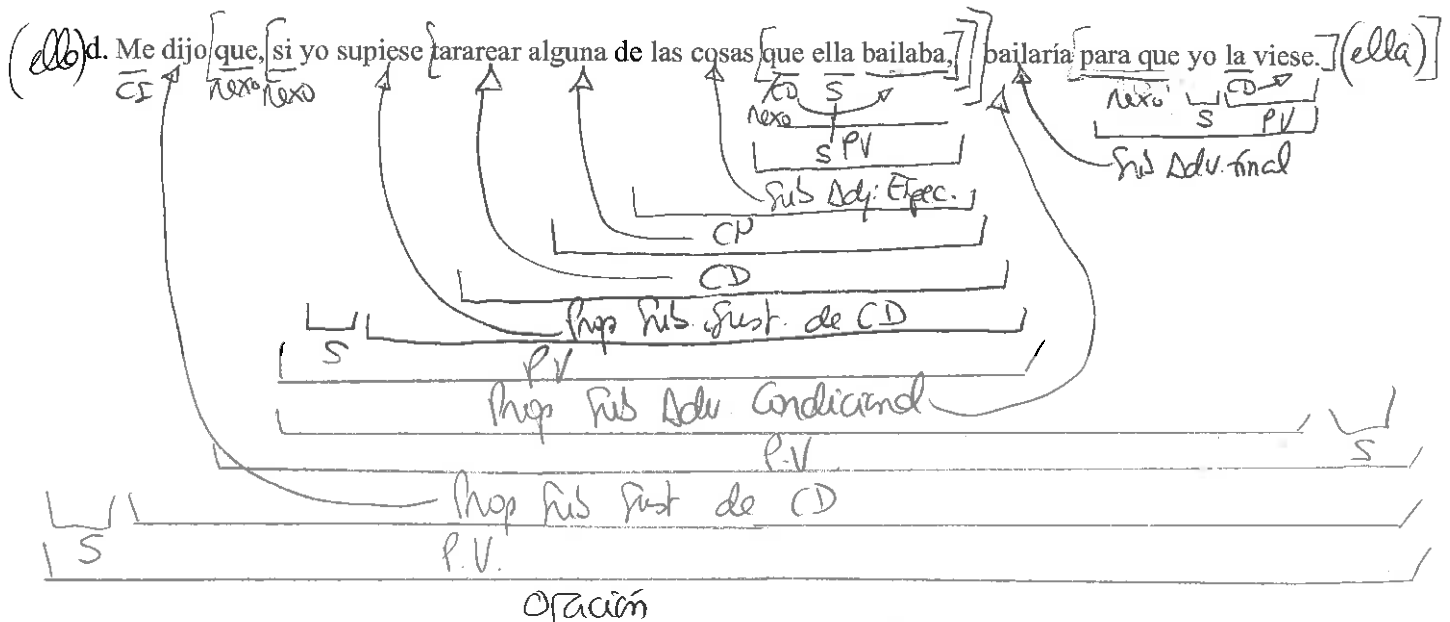 (ello) d. Me dijo [que, [si yo supiese [tararear alguna de las cosas [que ella bailaba,]]] bailaría [para que yo la viese.] (ella)]
CI nexo nexo CD S nexo S CD
nexo PV
S PV
Sub Adv. final
Sub Adj. Espec.
CN
CD
Prop Sub. Sust. de CD
S PV
Prop Sub Adv. Condicional
P.V S
Prop Sub Sust de CD
S P.V.
Oración